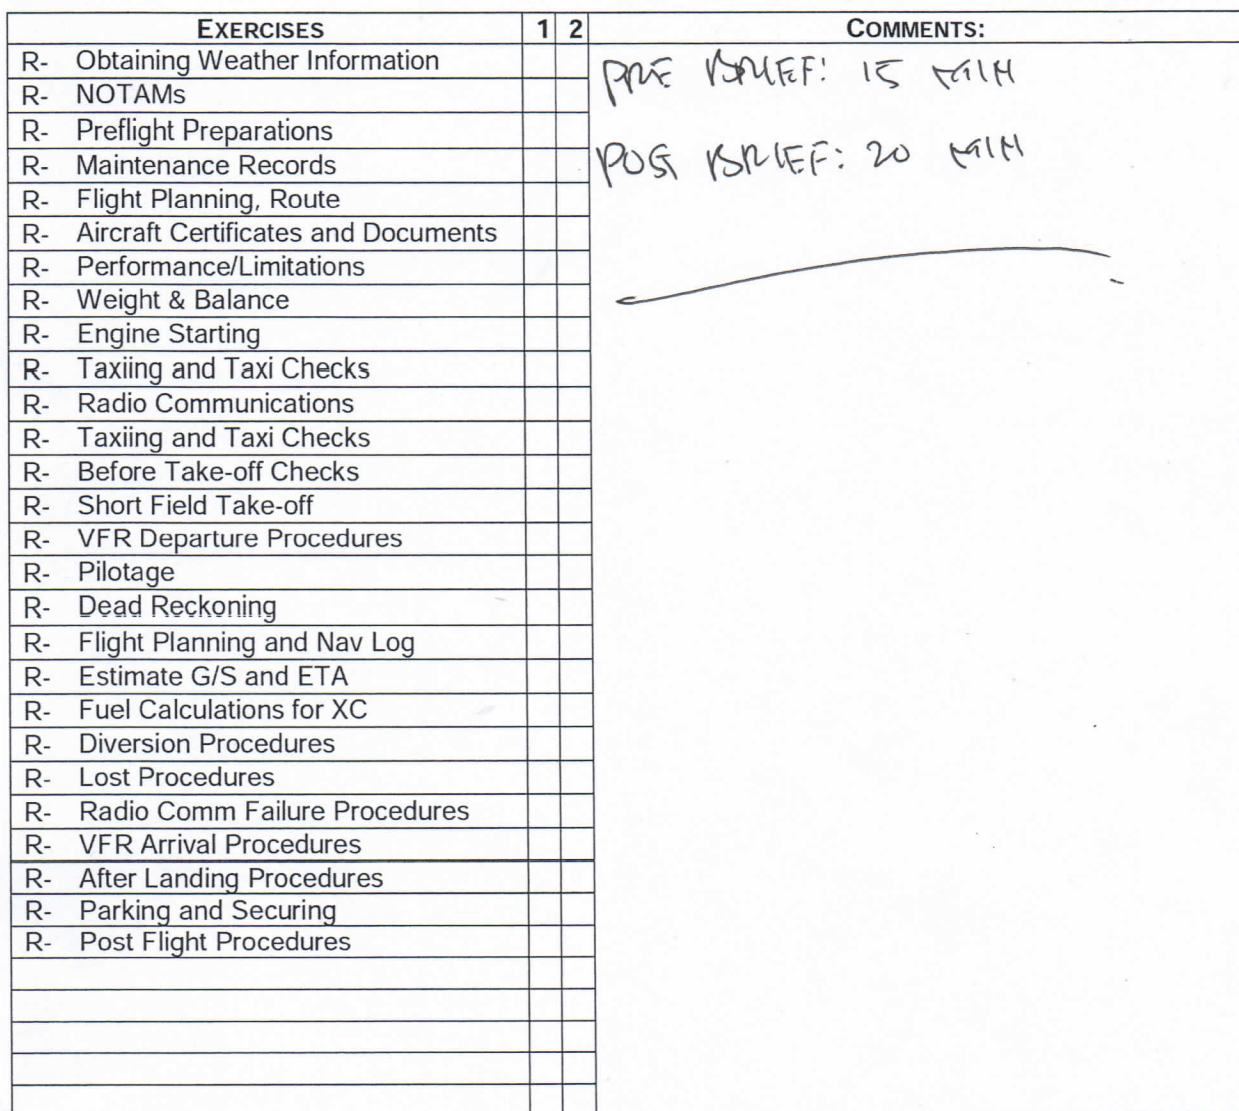 EXERCISES 1 2 COMMENTS:
R- Obtaining Weather Information
R- NOTAMs
R- Preflight Preparations
R- Maintenance Records
R- Flight Planning, Route
R- Aircraft Certificates and Documents
R- Performance/Limitations
R- Weight & Balance
R- Engine Starting
R- Taxiing and Taxi Checks
R- Radio Communications
R- Taxiing and Taxi Checks
R- Before Take-off Checks
R- Short Field Take-off
R- VFR Departure Procedures
R- Pilotage
R- Dead Reckoning
R- Flight Planning and Nav Log
R- Estimate G/S and ETA
R- Fuel Calculations for XC
R- Diversion Procedures
R- Lost Procedures
R- Radio Comm Failure Procedures
R- VFR Arrival Procedures
R- After Landing Procedures
R- Parking and Securing
R- Post Flight Procedures
PRE BRIEF: 15 MIN
POST BRIEF: 20 MIN